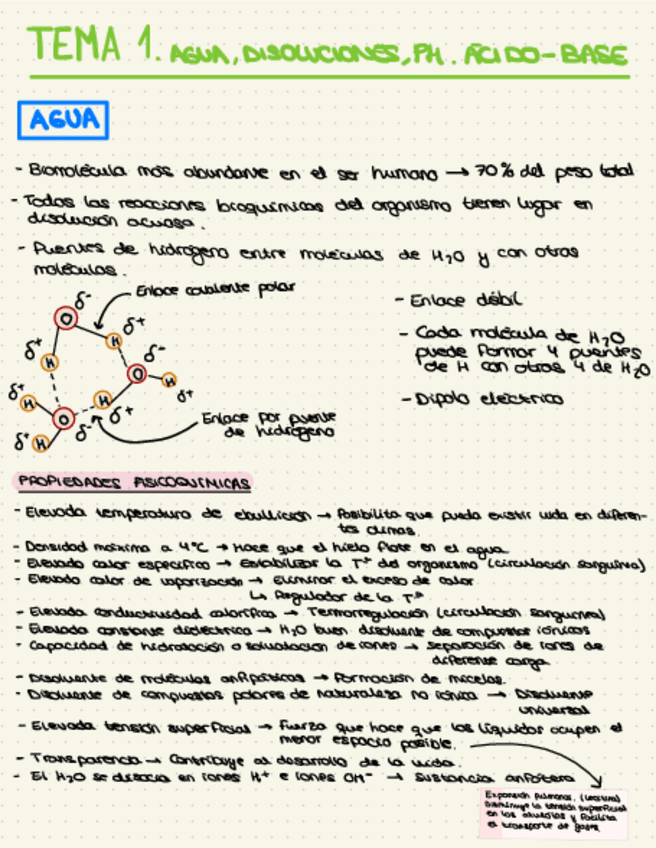 TEMA 1. AGUA, DISOLUCIONES, PH. ÁCIDO-BASE
AGUA
- Biomolécula más abundante en el ser humano → 70% del peso total
- Todas las reacciones bioquímicas del organismo tienen lugar en
disolución acuosa.
- Puentes de hidrógeno entre moléculas de H₂O y con otras
moléculas.
Enlace covalente polar
δ-
O
δ+
H
δ+
H
δ-
O
H
δ+
δ+
H
H
δ+
O
δ-
δ+
H
Enlace por puente
de hidrógeno
- Enlace débil
- Cada molécula de H₂O
puede formar 4 puentes
de H con otras 4 de H₂O
- Dipolo eléctrico
PROPIEDADES FISICOQUÍMICAS
- Elevada temperatura de ebullición → Posibilita que pueda existir vida en diferen-
tes climas.
- Densidad máxima a 4°C → Hace que el hielo flote en el agua
- Elevado calor específico → Estabilizar la Tª del organismo (circulación sanguínea)
- Elevado calor de vaporización → Eliminar el exceso de calor
↳ Regulador de la Tª
- Elevada conductividad calorífica → Termorregulación (circulación sanguínea)
- Elevada constante dieléctrica → H₂O buen disolvente de compuestos iónicos
- Capacidad de hidratación o solvatación de iones → separación de iones de
diferente carga
- Disolvente de moléculas anfipáticas → Formación de micelas.
- Disolvente de compuestos polares de naturaleza no iónica → Disolvente
universal
- Elevada tensión superficial → Fuerza que hace que los líquidos ocupen el
menor espacio posible.
- Transparencia → Contribuye al desarrollo de la vida.
- El H₂O se disocia en iones H⁺ e iones OH⁻ → Sustancia anfótera
Expansión pulmonar,
Disminuye la tensión superficial
en los alveolos y facilita
el transporte de gases